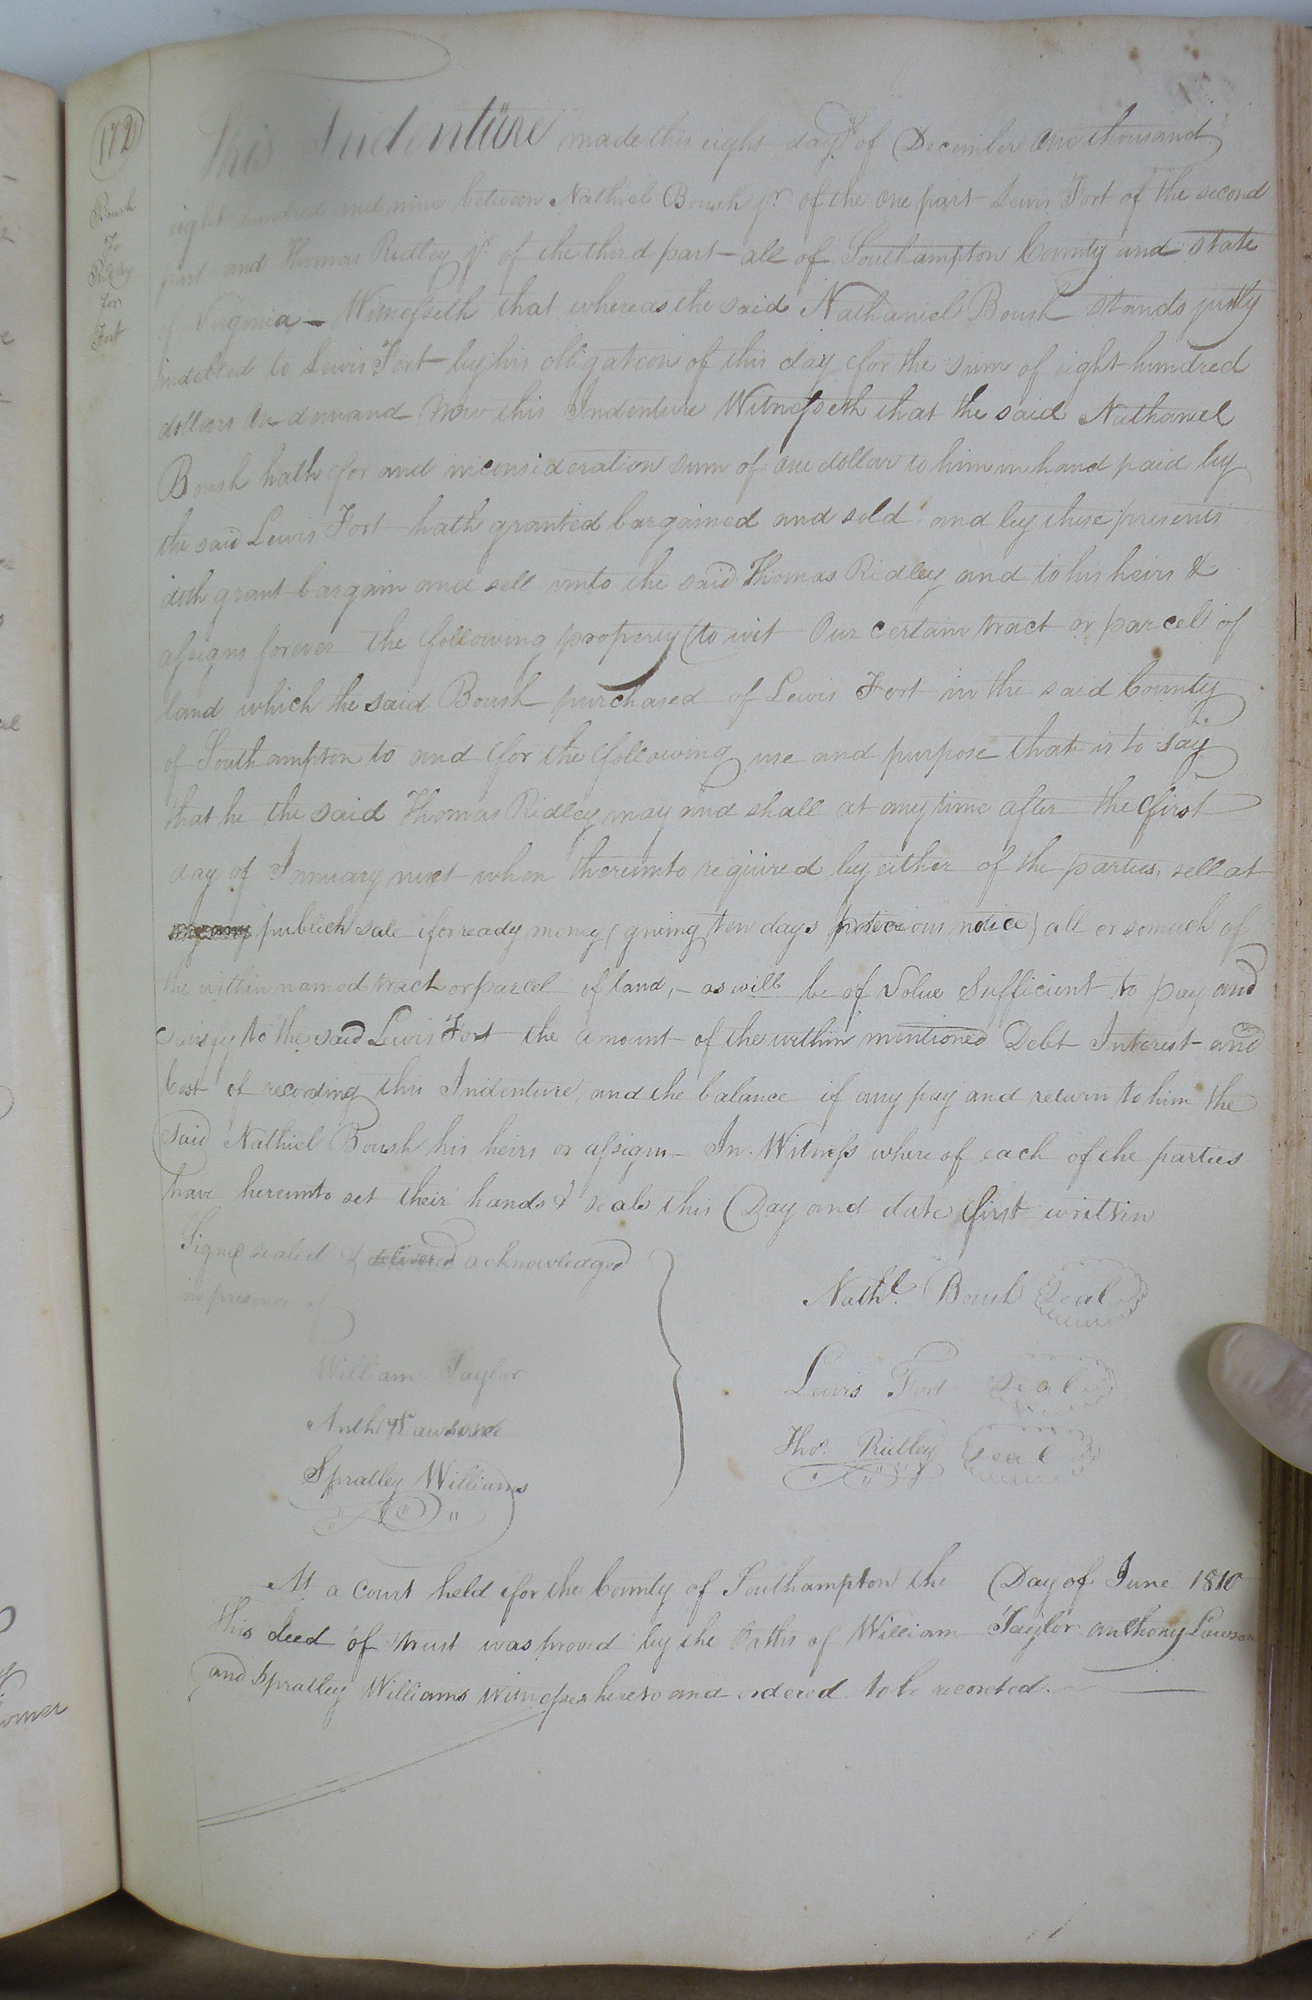 172
Boush
To
Ridley
for
Fort
This Indenture made this eight day of December one thousand
eight hundred and nine between Nathiel Boush jr. of the one part Lewis Fort of the second
part and Thomas Ridley jr of the third part - all of Southampton County and State
of Virginia - Witnesseth that whereas the said Nathaniel Boush stands justly
indebted to Lewis Fort - by his obligation of this day for the sum of eight hundred
dollars on demand Now this Indenture Witnesseth that the said Nathaniel
Boush hath for and inconsideration sum of one dollar to him in hand paid by
the said Lewis Fort hath granted bargained and sold and by these presents
doth grant bargain and sell unto the said Thomas Ridley and to his heirs &
assigns forever the following property (to wit One certain tract or parcel of
land which the said Boush purchased of Lewis Fort in the said County
of Southampton to and for the following use and purpose that is to say
that he the said Thomas Ridley may and shall at any time after the first
day of January next when thereunto required by either of the parties, sell at
publick sale for ready money (giving ten days previous notice) all or somuch of
the within named tract or parcel of land, - as will be of value sufficient to pay and
satisfy to the said Lewis Fort the amount of the within mentioned Debt Interest and
Cost of recording this Indenture, and the balance if any pay and return to him the
said Nathiel Boush his heirs or assigns - In Witness where of each of the parties
have hereunto set their hands & seals this Day and date first written
Signed sealed & delivered acknowledged
in presence of
William Taylor
Anth
Spratley Williams
Nathl. Boush Seal
Lewis Fort Seal
Thos. Ridley Seal
At a court held for the County of Southampton the Day of June 1810
This deed of trust was proved by the Oaths of William Taylor Anthony Lawson
and Spratley Williams witnesses hereto and ordered to be recorded.